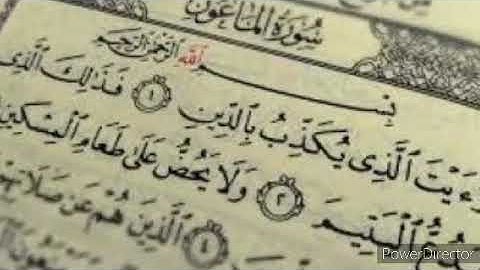 سُورَةُ الْمَاعُونِ
بِسْمِ ٱللَّهِ ٱلرَّحْمَٰنِ ٱلرَّحِيمِ
ءَيْتَ ٱلَّذِى يُكَذِّبُ بِٱلدِّينِ ١ فَذَٰلِكَ ٱلَّذِى
عُّ ٱلْيَتِيمَ ٢ وَلَا يَحُضُّ عَلَىٰ طَعَامِ ٱلْمِسْكِينِ
٤ ٱلَّذِينَ هُمْ عَن صَلَاتِهِمْ
PowerDirector